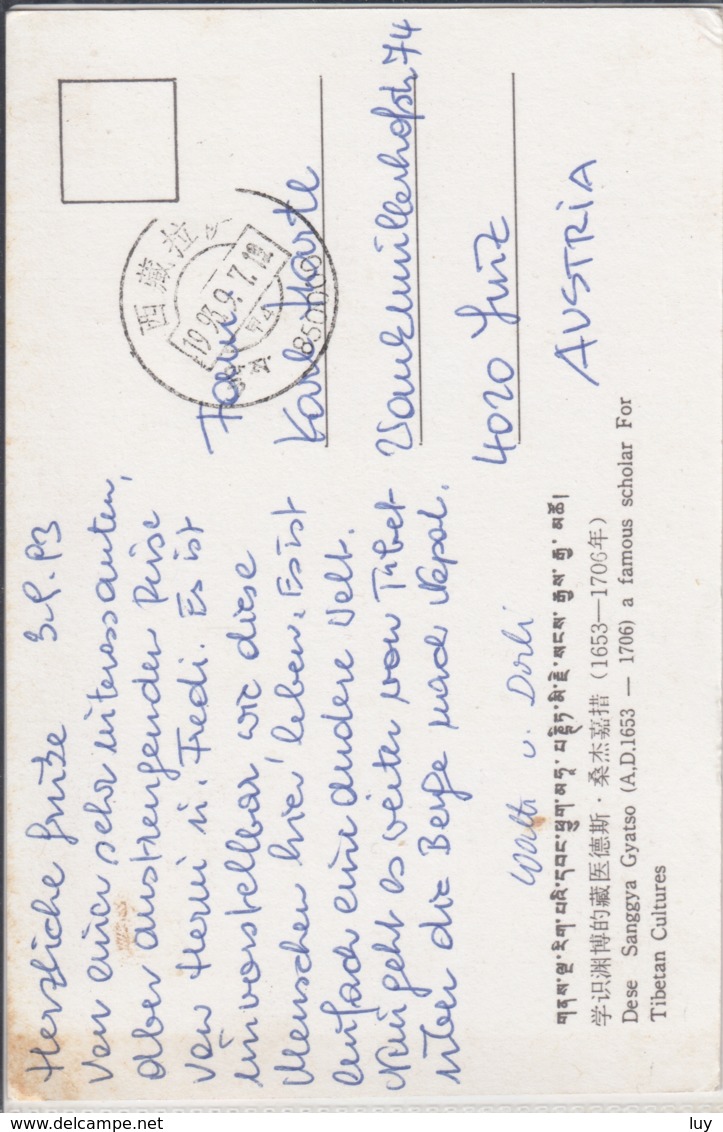 Herzliche Grüße 3.9.93
von einer sehr interessanten,
aber anstrengenden Reise
von Hermi u. Fredi. Es ist
unvorstellbar wie diese
Menschen hier leben. Es ist
einfach eine andere Welt.
Nun geht es weiter von Tibet
über die Berge nach Nepal.
u.
Familie
Karl Hartl
Vankmüllerhofstr. 74
4020 Linz
AUSTRIA
西藏拉
1993.9.7.12
850000
学识渊博的藏医德斯·桑杰嘉措（1653—1706年）
Dese Sanggya Gyatso (A.D.1653 — 1706) a famous scholar For
Tibetan Cultures
luy